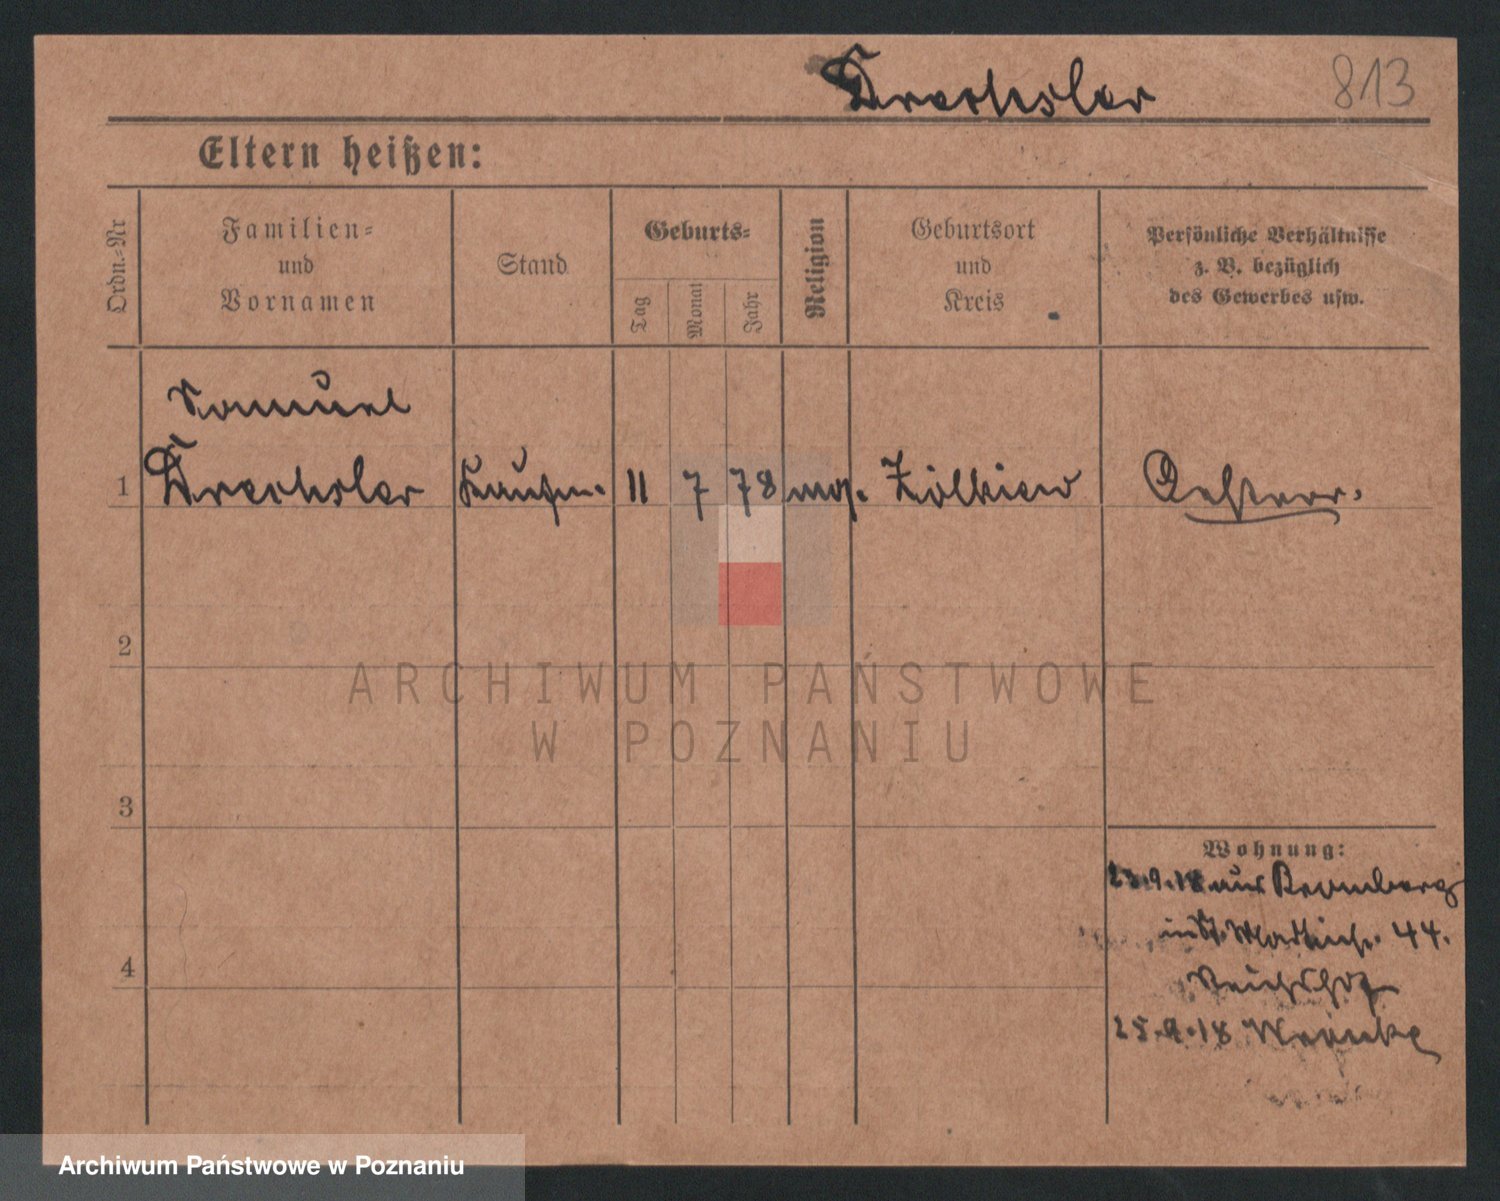 Drechsler 813
Eltern heißen:
Ordn.-Nr
Familien-
und
Vornamen
Stand
Geburts-
Tag
Monat
Jahr
Religion
Geburtsort
und
Kreis
Persönliche Verhältnisse
z. B. bezüglich
des Gewerbes usw.
Samuel
1 Drechsler Kaufm. 11 7 78 mos. Zolkiew Oesterr.
2
ARCHIWUM PAŃSTWOWE
W POZNANIU
3
Wohnung:
23.9.18 aus Bromberg
in St. Martinstr. 44.
4
Reichshof
25.9.18
Archiwum Państwowe w Poznaniu